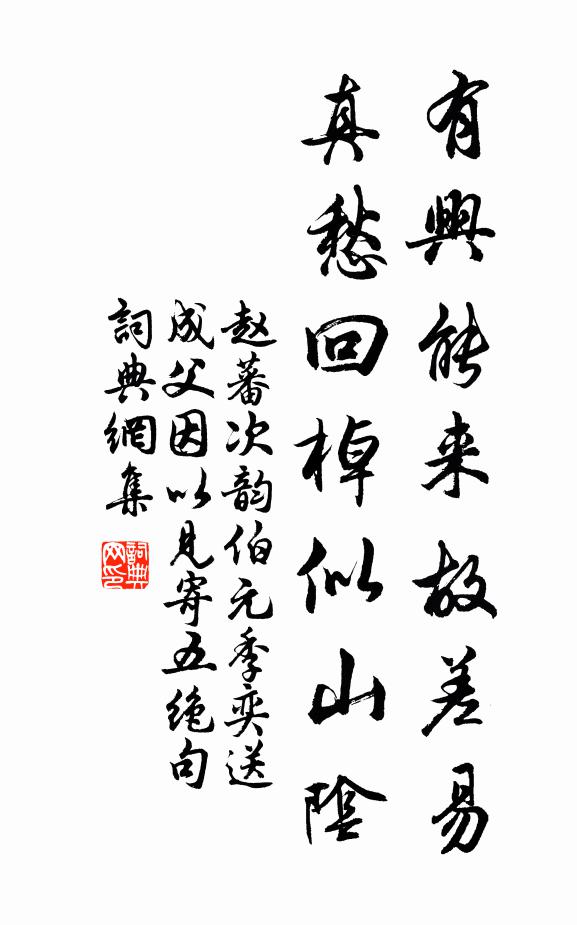 有興能来故差易
真愁回棹似山陰
赵蕃次韵伯元季奕送
成父因以見寄五绝句
詞典網集
詞典
网印